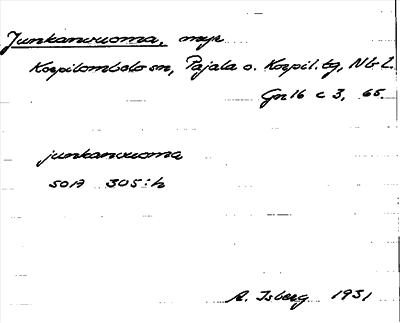 Junkanvuoma, myr
Korpilombolo sn, Pajala o. Korpil. tg, Nb L.
Gn 16 c 3, 65.
junkanvuoma
SOA 305:h
A. Isberg 1931